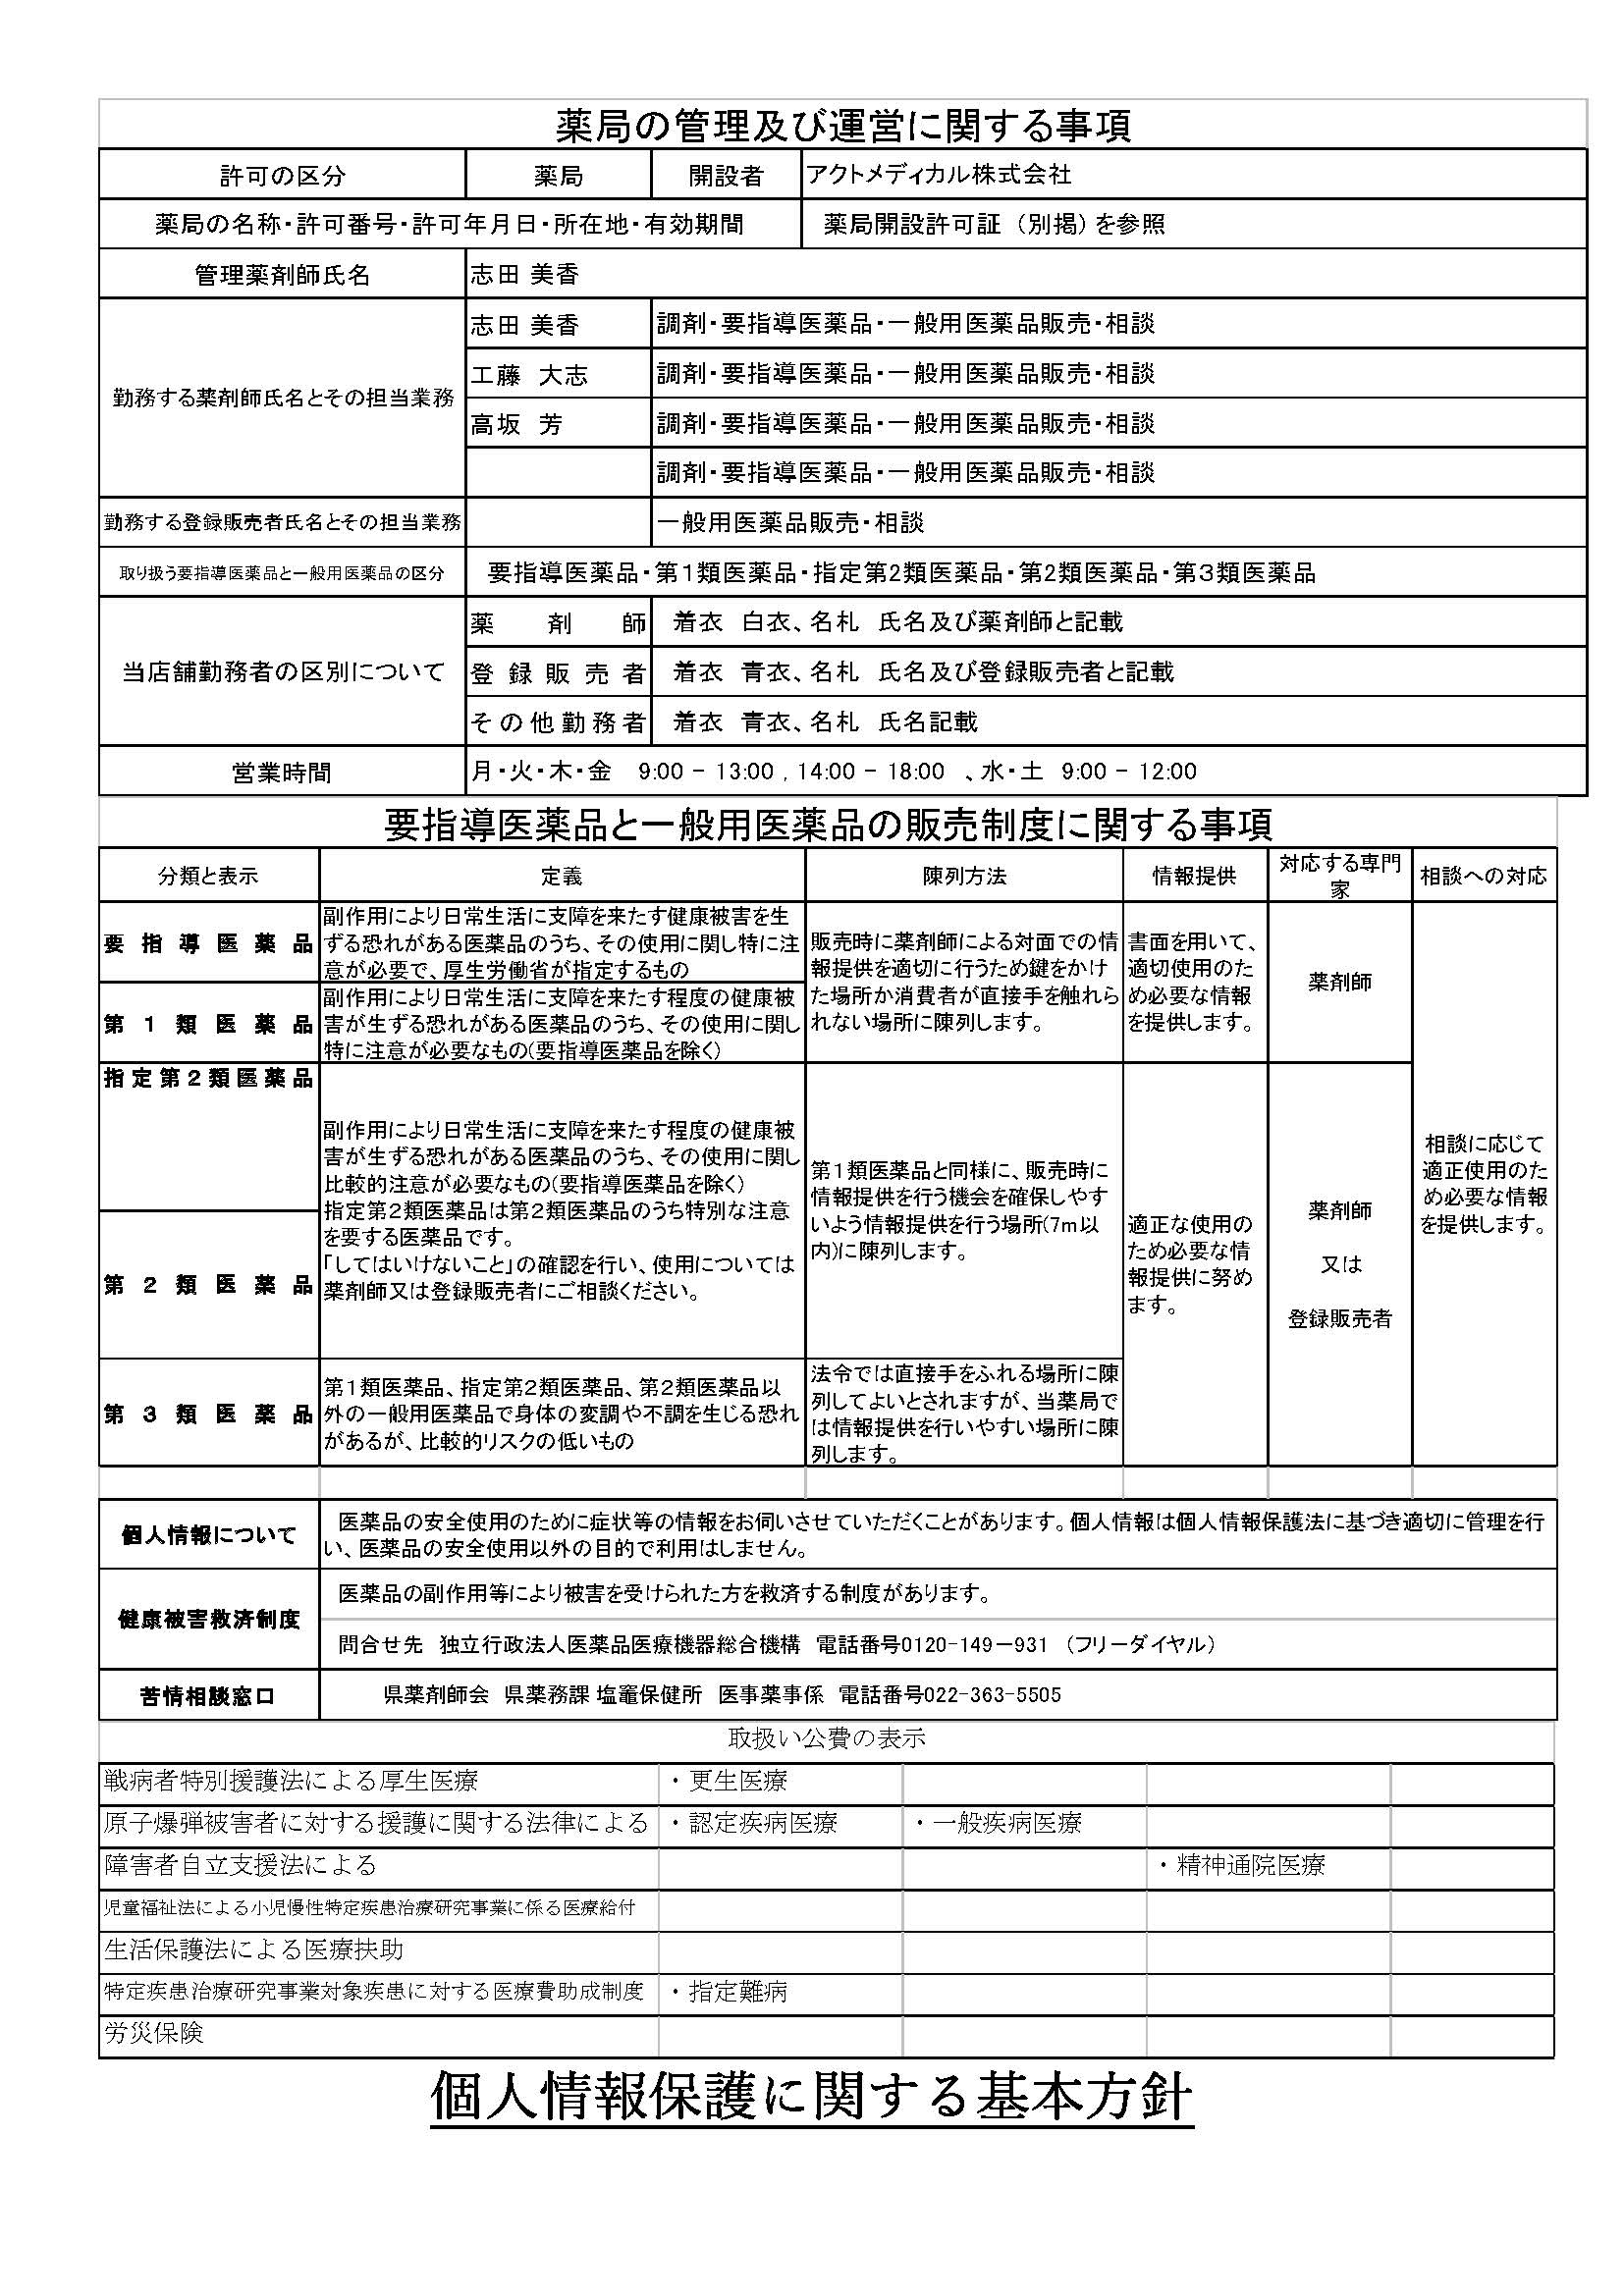 薬局の管理及び運営に関する事項
許可の区分 薬局 開設者 アクトメディカル株式会社
薬局の名称・許可番号・許可年月日・所在地・有効期間 薬局開設許可証 (別掲)を参照
管理薬剤師氏名 志田 美香
勤務する薬剤師氏名とその担当業務
志田 美香 調剤・要指導医薬品・一般用医薬品販売・相談
工藤 大志 調剤・要指導医薬品・一般用医薬品販売・相談
高坂 芳 調剤・要指導医薬品・一般用医薬品販売・相談
調剤・要指導医薬品・一般用医薬品販売・相談
勤務する登録販売者氏名とその担当業務 一般用医薬品販売・相談
取り扱う要指導医薬品と一般用医薬品の区分 要指導医薬品・第1類医薬品・指定第2類医薬品・第2類医薬品・第3類医薬品
当店舗勤務者の区別について
薬剤師 着衣 白衣、名札 氏名及び薬剤師と記載
登録販売者 着衣 青衣、名札 氏名及び登録販売者と記載
その他勤務者 着衣 青衣、名札 氏名記載
営業時間 月・火・木・金 9:00 - 13:00 , 14:00 - 18:00 、水・土 9:00 - 12:00
要指導医薬品と一般用医薬品の販売制度に関する事項
分類と表示 定義 陳列方法 情報提供 対応する専門
家
相談への対応
要指導医薬品
副作用により日常生活に支障を来たす健康被害を生
ずる恐れがある医薬品のうち、その使用に関し特に注
意が必要で、厚生労働省が指定するもの
販売時に薬剤師による対面での情
報提供を適切に行うため鍵をかけ
た場所か消費者が直接手を触れら
れない場所に陳列します。
書面を用いて、
適切使用のた
め必要な情報
を提供します。
薬剤師
第1類医薬品
副作用により日常生活に支障を来たす程度の健康被
害が生ずる恐れがある医薬品のうち、その使用に関し
特に注意が必要なもの(要指導医薬品を除く)
指定第2類医薬品
第2類医薬品
副作用により日常生活に支障を来たす程度の健康被
害が生ずる恐れがある医薬品のうち、その使用に関し
比較的注意が必要なもの(要指導医薬品を除く)
指定第2類医薬品は第2類医薬品のうち特別な注意
を要する医薬品です。
「してはいけないこと」の確認を行い、使用については
薬剤師又は登録販売者にご相談ください。
第1類医薬品と同様に、販売時に
情報提供を行う機会を確保しやす
いよう情報提供を行う場所(7m以
内)に陳列します。
適正な使用の
ため必要な情
報提供に努め
ます。
薬剤師
又は
登録販売者
相談に応じて
適正使用のた
め必要な情報
を提供します。
第3類医薬品
第1類医薬品、指定第2類医薬品、第2類医薬品以
外の一般用医薬品で身体の変調や不調を生じる恐れ
があるが、比較的リスクの低いもの
法令では直接手をふれる場所に陳
列してよいとされますが、当薬局で
は情報提供を行いやすい場所に陳
列します。
個人情報について
医薬品の安全使用のために症状等の情報をお伺いさせていただくことがあります。個人情報は個人情報保護法に基づき適切に管理を行
い、医薬品の安全使用以外の目的で利用はしません。
健康被害救済制度
医薬品の副作用等により被害を受けられた方を救済する制度があります。
問合せ先 独立行政法人医薬品医療機器総合機構 電話番号0120-149-931 (フリーダイヤル)
苦情相談窓口 県薬剤師会 県薬務課 塩竈保健所 医事薬事係 電話番号022-363-5505
取扱い公費の表示
戦病者特別援護法による厚生医療 ・更生医療
原子爆弾被害者に対する援護に関する法律による ・認定疾病医療 ・一般疾病医療
障害者自立支援法による ・精神通院医療
児童福祉法による小児慢性特定疾患治療研究事業に係る医療給付
生活保護法による医療扶助
特定疾患治療研究事業対象疾患に対する医療費助成制度 ・指定難病
労災保険
個人情報保護に関する基本方針